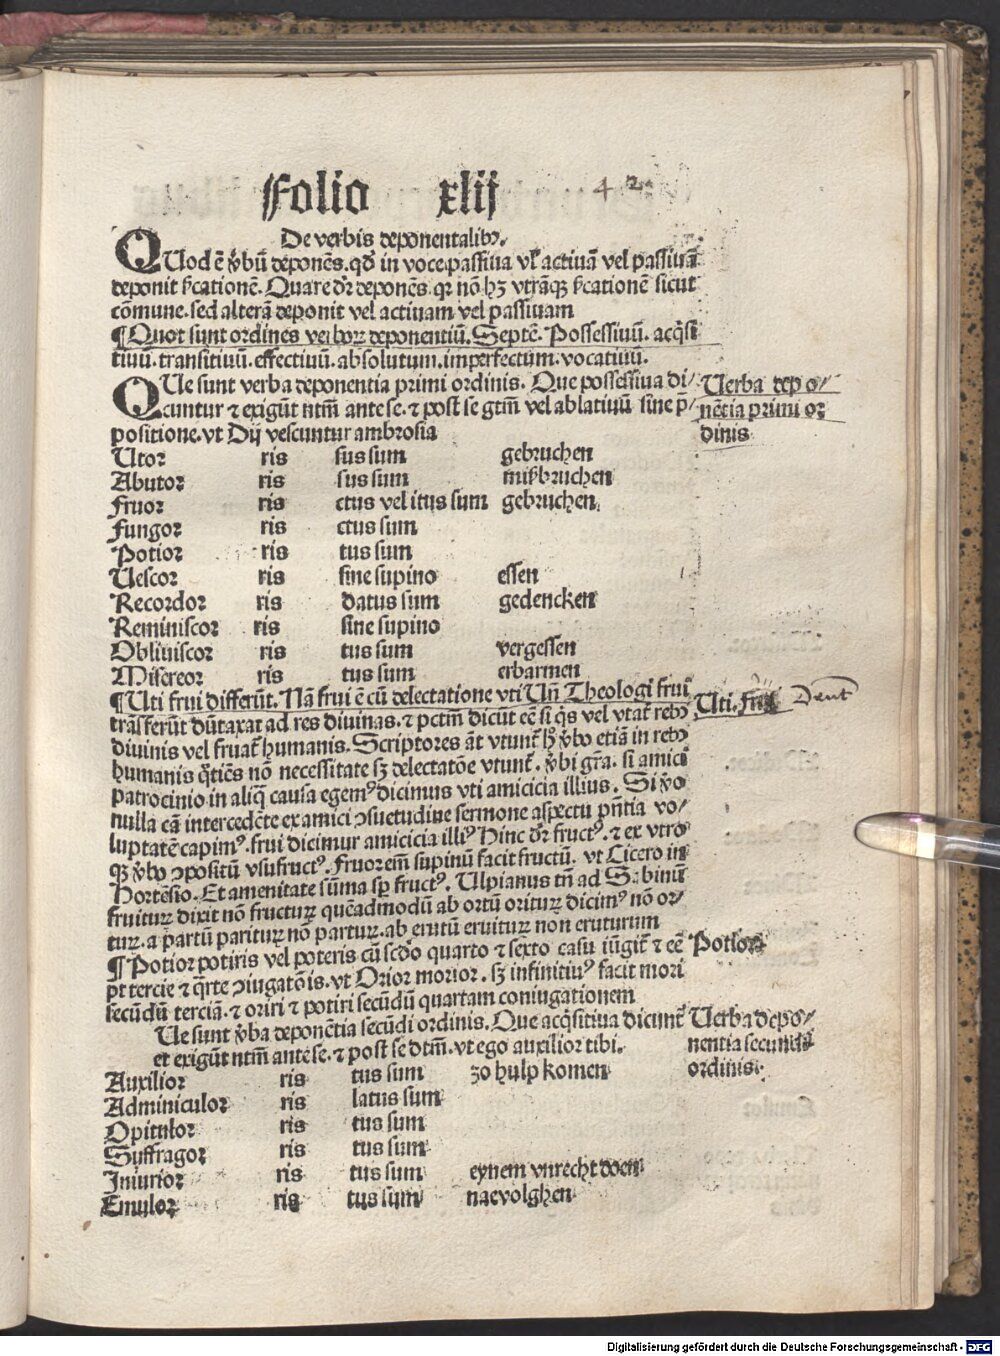 Folio xlij 42
De verbis deponentalibꝰ.
QUod ē ṽbū deponēs. qđ in voce passiua vł actiuā vel passiuā
deponit sc̄cationē. Quare dr̄ deponēs qꝛ nō hꝫ vtrāqꝫ sc̄cationē sicut
cōmune. sed alterā deponit vel actiuam vel passiuam
¶Quot sunt ordines verboꝝ deponentiū. Septē. Possessiuū. acq̄si
tiuū. transitiuū. effectiuū. absolutum. imperfectum. vocatiuū.
QUe sunt verba deponentia primi ordinis. Que possessiua di/
cuntur ⁊ exigūt ntm̄ ante se. ⁊ post se gtm̄ vel ablatiuū sine p̄/
positione. vt Dij vescuntur ambrosia
Verba depo/
nētia primi or
dinis
Utor ris sus sum gebruchen
Abutor ris sus sum mißbruchen
Fruor ris ctus vel itus sum gebruchen
Fungor ris ctus sum
Potior ris tus sum
Uescor ris sine supino essen
Recordor ris datus sum gedencken
Reminiscor ris sine supino
Obliuiscor ris tus sum vergessen
Misereor ris tus sum erbarmen
¶Uti frui differūt. Nā frui ē cū delectatione vti Uñ Theologi frui
trāsferūt dūtaxat ad res diuinas. ⁊ pctm̄ dicūt eē si q̄s vel vtat̄ rebꝰ
diuinis vel fruat̄ humanis. Scriptores āt vtunt̄ h̄ ṽbo etiā in rebꝰ
humanis q̄tiēs nō necessitate sꝫ delectatōe vtunt̄. ṽbi gr̄a. si amici
patrocinio in aliq̄ causa egemꝰ dicimus vti amicicia illius. Si ṽo
nulla eā intercedēte ex amici ↄsuetudine sermone aspectu pñtia vo/
luptatē capimꝰ. frui dicimur amicicia illiꝰ Hinc dr̄ fructꝰ. ⁊ ex vtro
qꝫ ṽbo ↄpositū vsufructꝰ. Fruor em̄ supinū facit fructū. vt Cicero in
Hortēsio. Et amenitate sūma sp̄ fructꝰ. Ulpianus tñ ad Sabinū
fruituꝝ dixit nō fructuꝝ quēadmodū ab ortū orituꝝ dicimꝰ nō or/
tuꝝ. a partū parituꝝ nō partuꝝ. ab erutū eruituꝝ non eruturum
Uti. frui Dent
¶Potior potiris vel poteris cū scđo quarto ⁊ sexto casu iūgit̄ ⁊ eē
pt tercie ⁊ q̄rte ↄiugatōis. vt Orior morior. sꝫ infinitiuꝰ facit mori
secūdū terciā. ⁊ oriri ⁊ potiri secūdū quartam coniugationem
Potior
Ue sunt ṽba deponētia secūdi ordinis. Que acq̄sitiua dicunt̄
et exigūt ntm̄ ante se. ⁊ post se dtm̄. vt ego auxilior tibi.
Verba depo/
nentia secundi
ordinis.
Auxilior ris tus sum zo hulp komen
Adminiculor ris latus sum
Opitulor ris tus sum
Suffragor ris tus sum
Iniurior ris tus sum eynem vnrecht doen
Emulor ris tus sum naevolghen
Digitalisierung gefördert durch die Deutsche Forschungsgemeinschaft - DFG